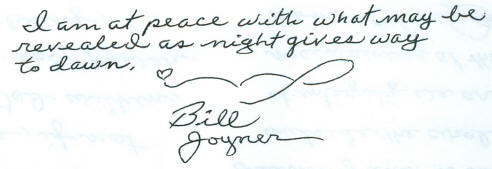 I am at peace with what may be
revealed as night gives way
to dawn.
Bill
Joyner